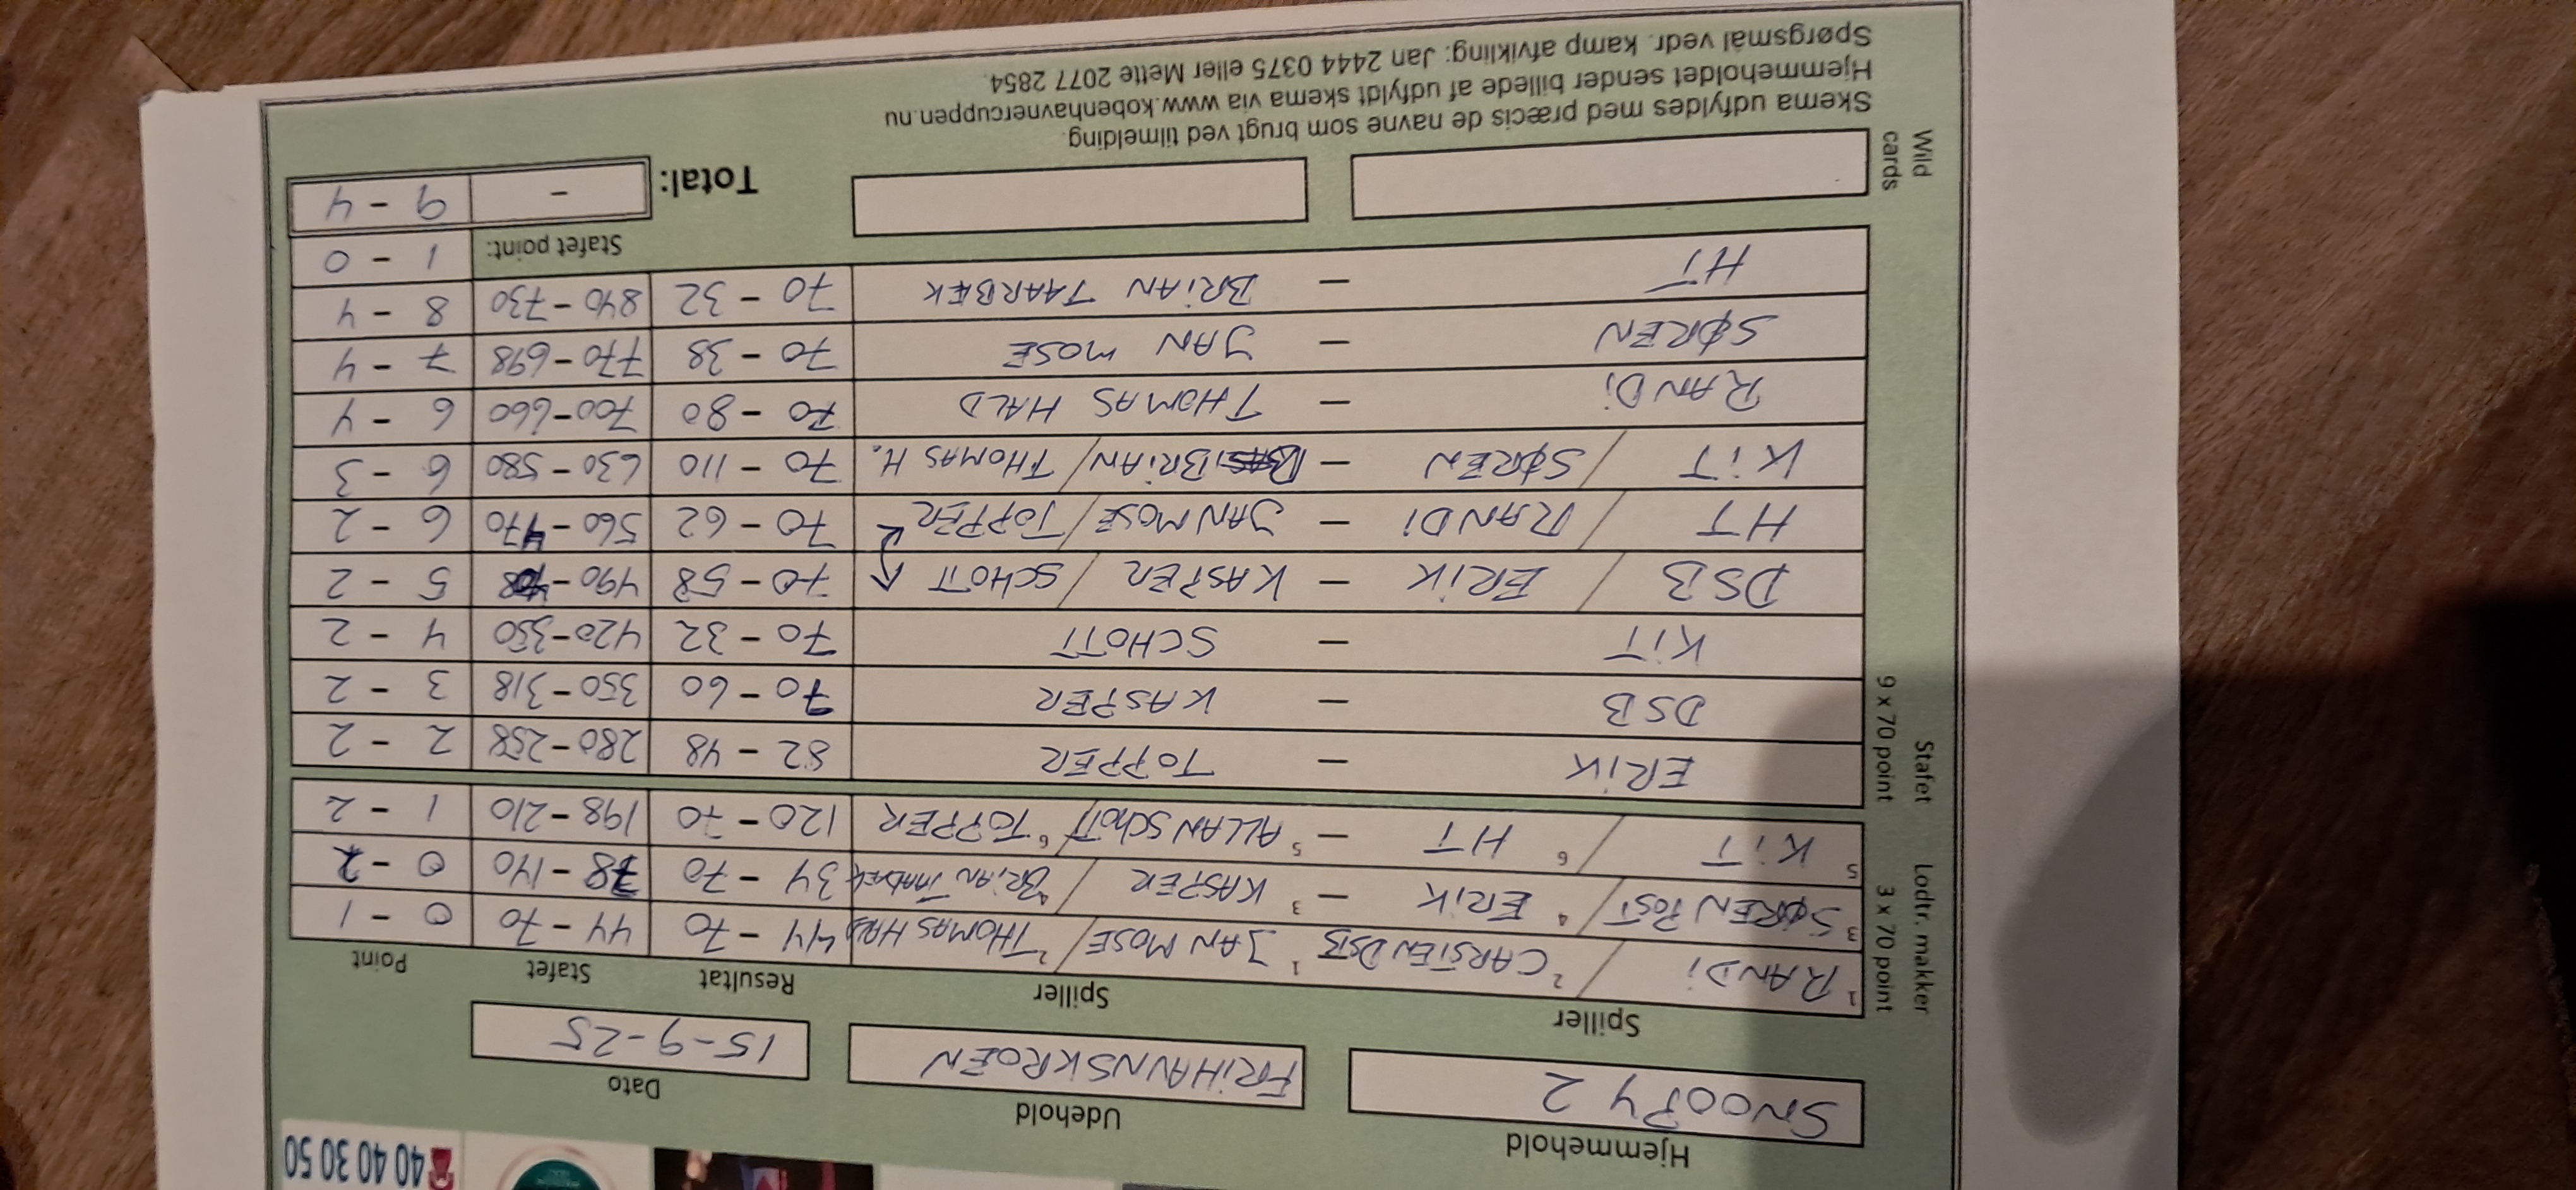 40 40 30 50
Hjemmehold Udehold Dato
SNOOPY 2 FRIHAVNSKROEN 15-9-25
Spiller Spiller Resultat Stafet Point
Lodtr. makker 3 x 70 point
1 RANDi / 2 CARSTEN DSB 1 JAN MOSE / 2 THOMAS HALD 44 - 70 44 - 70 0 - 1
3 SØREN POST / 4 ERiK - 3 KASPER / 4 BRiAN 34 - 70 78 - 140 0 - 2
5 KiT / 6 HT - 5 ALLAN SCHOTT / 6 TOPPER 120 - 70 198 - 210 1 - 2
Stafet 9 x 70 point
ERiK - TOPPER 82 - 48 280 - 258 2 - 2
DSB - KASPER 70 - 60 350 - 318 3 - 2
KiT - SCHOTT 70 - 32 420 - 350 4 - 2
DSB / ERiK - KASPER / SCHOTT 70 - 58 490 - 5 - 2
HT / RANDi - JAN MOSE / TOPPER 70 - 62 560 - 470 6 - 2
KiT / SØREN - BRiAN / THOMAS H. 70 - 110 630 - 580 6 - 3
RANDi - THOMAS HALD 70 - 80 700 - 660 6 - 4
SØREN - JAN MOSE 70 - 38 770 - 698 7 - 4
HT - BRiAN TAARBÆK 70 - 32 840 - 730 8 - 4
Stafet point: 1 - 0
Wild cards Total: - 9 - 4
Skema udfyldes med præcis de navne som brugt ved tilmelding.
Hjemmeholdet sender billede af udfyldt skema via www.kobenhavnercuppen.nu
Spørgsmål vedr. kamp afvikling: Jan 2444 0375 eller Mette 2077 2854.